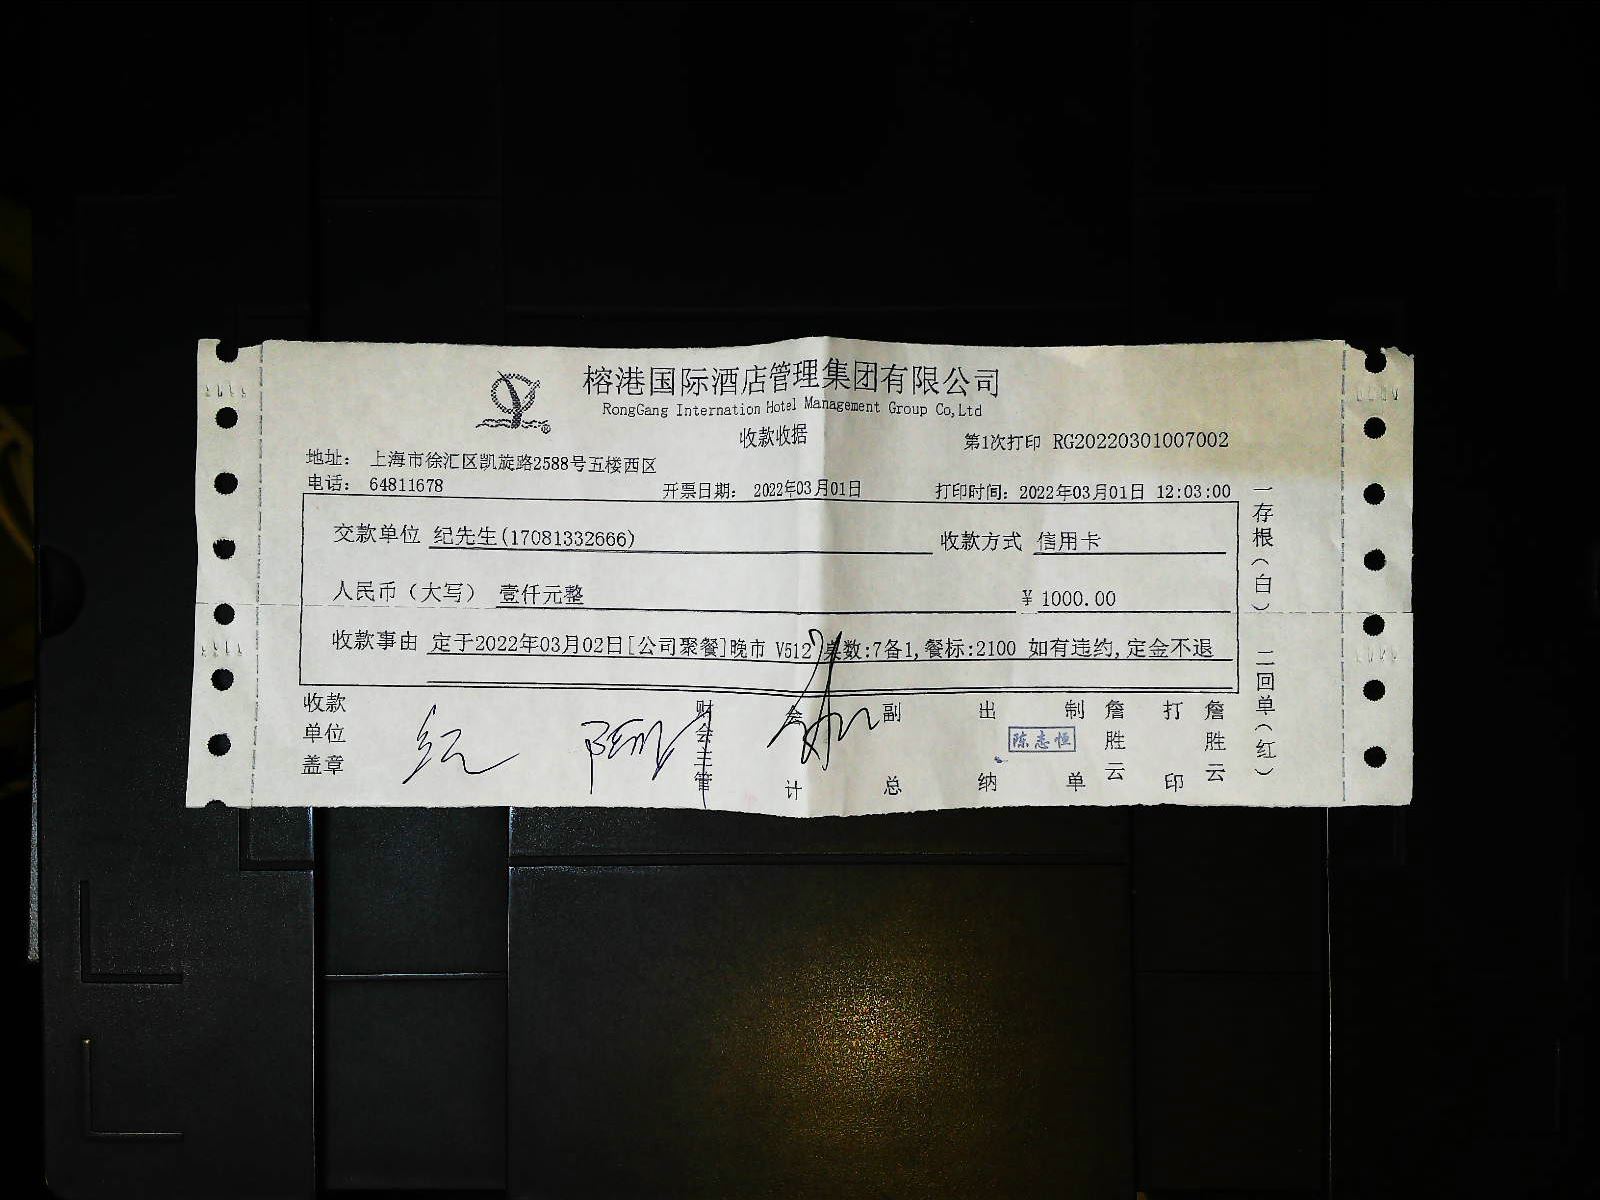 榕港国际酒店管理集团有限公司
RongGang Internation Hotel Management Group Co,Ltd
收款收据
第1次打印 RG20220301007002
地址： 上海市徐汇区凯旋路2588号五楼西区
电话： 64811678 开票日期： 2022年03月01日 打印时间：2022年03月01日 12:03:00
交款单位 纪先生(17081332666) 收款方式 信用卡
人民币（大写） 壹仟元整 ￥1000.00
收款事由 定于2022年03月02日[公司聚餐]晚市 V512 桌数:7备1,餐标:2100 如有违约,定金不退
收款单位盖章
财会主管
会计
副总
出纳
陈志恒
制单
詹胜云
打印
詹胜云
一存根（白）
二回单（红）